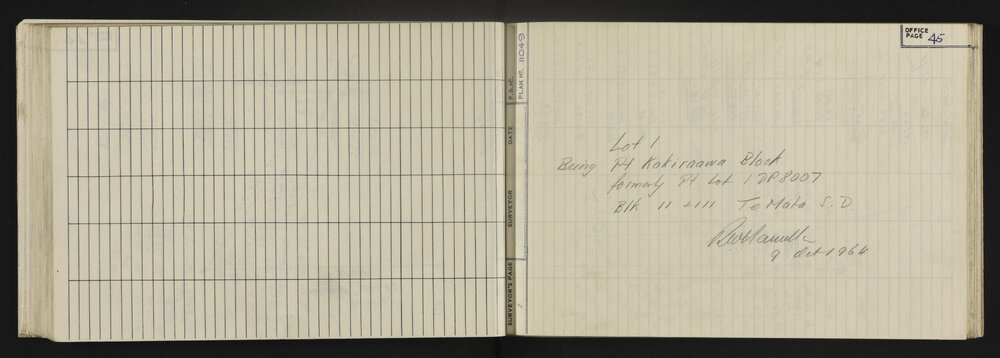 OFFICE PAGE 45
F.B. No.
PLAN No. 11049
DATE
SURVEYOR
SURVEYOR'S PAGE
Lot 1
Being Pt Kakiraawa Block
formerly Pt Lot 1 DP.8007
Blk 11 + 111 Te Mata S.D.
9 Oct 1964